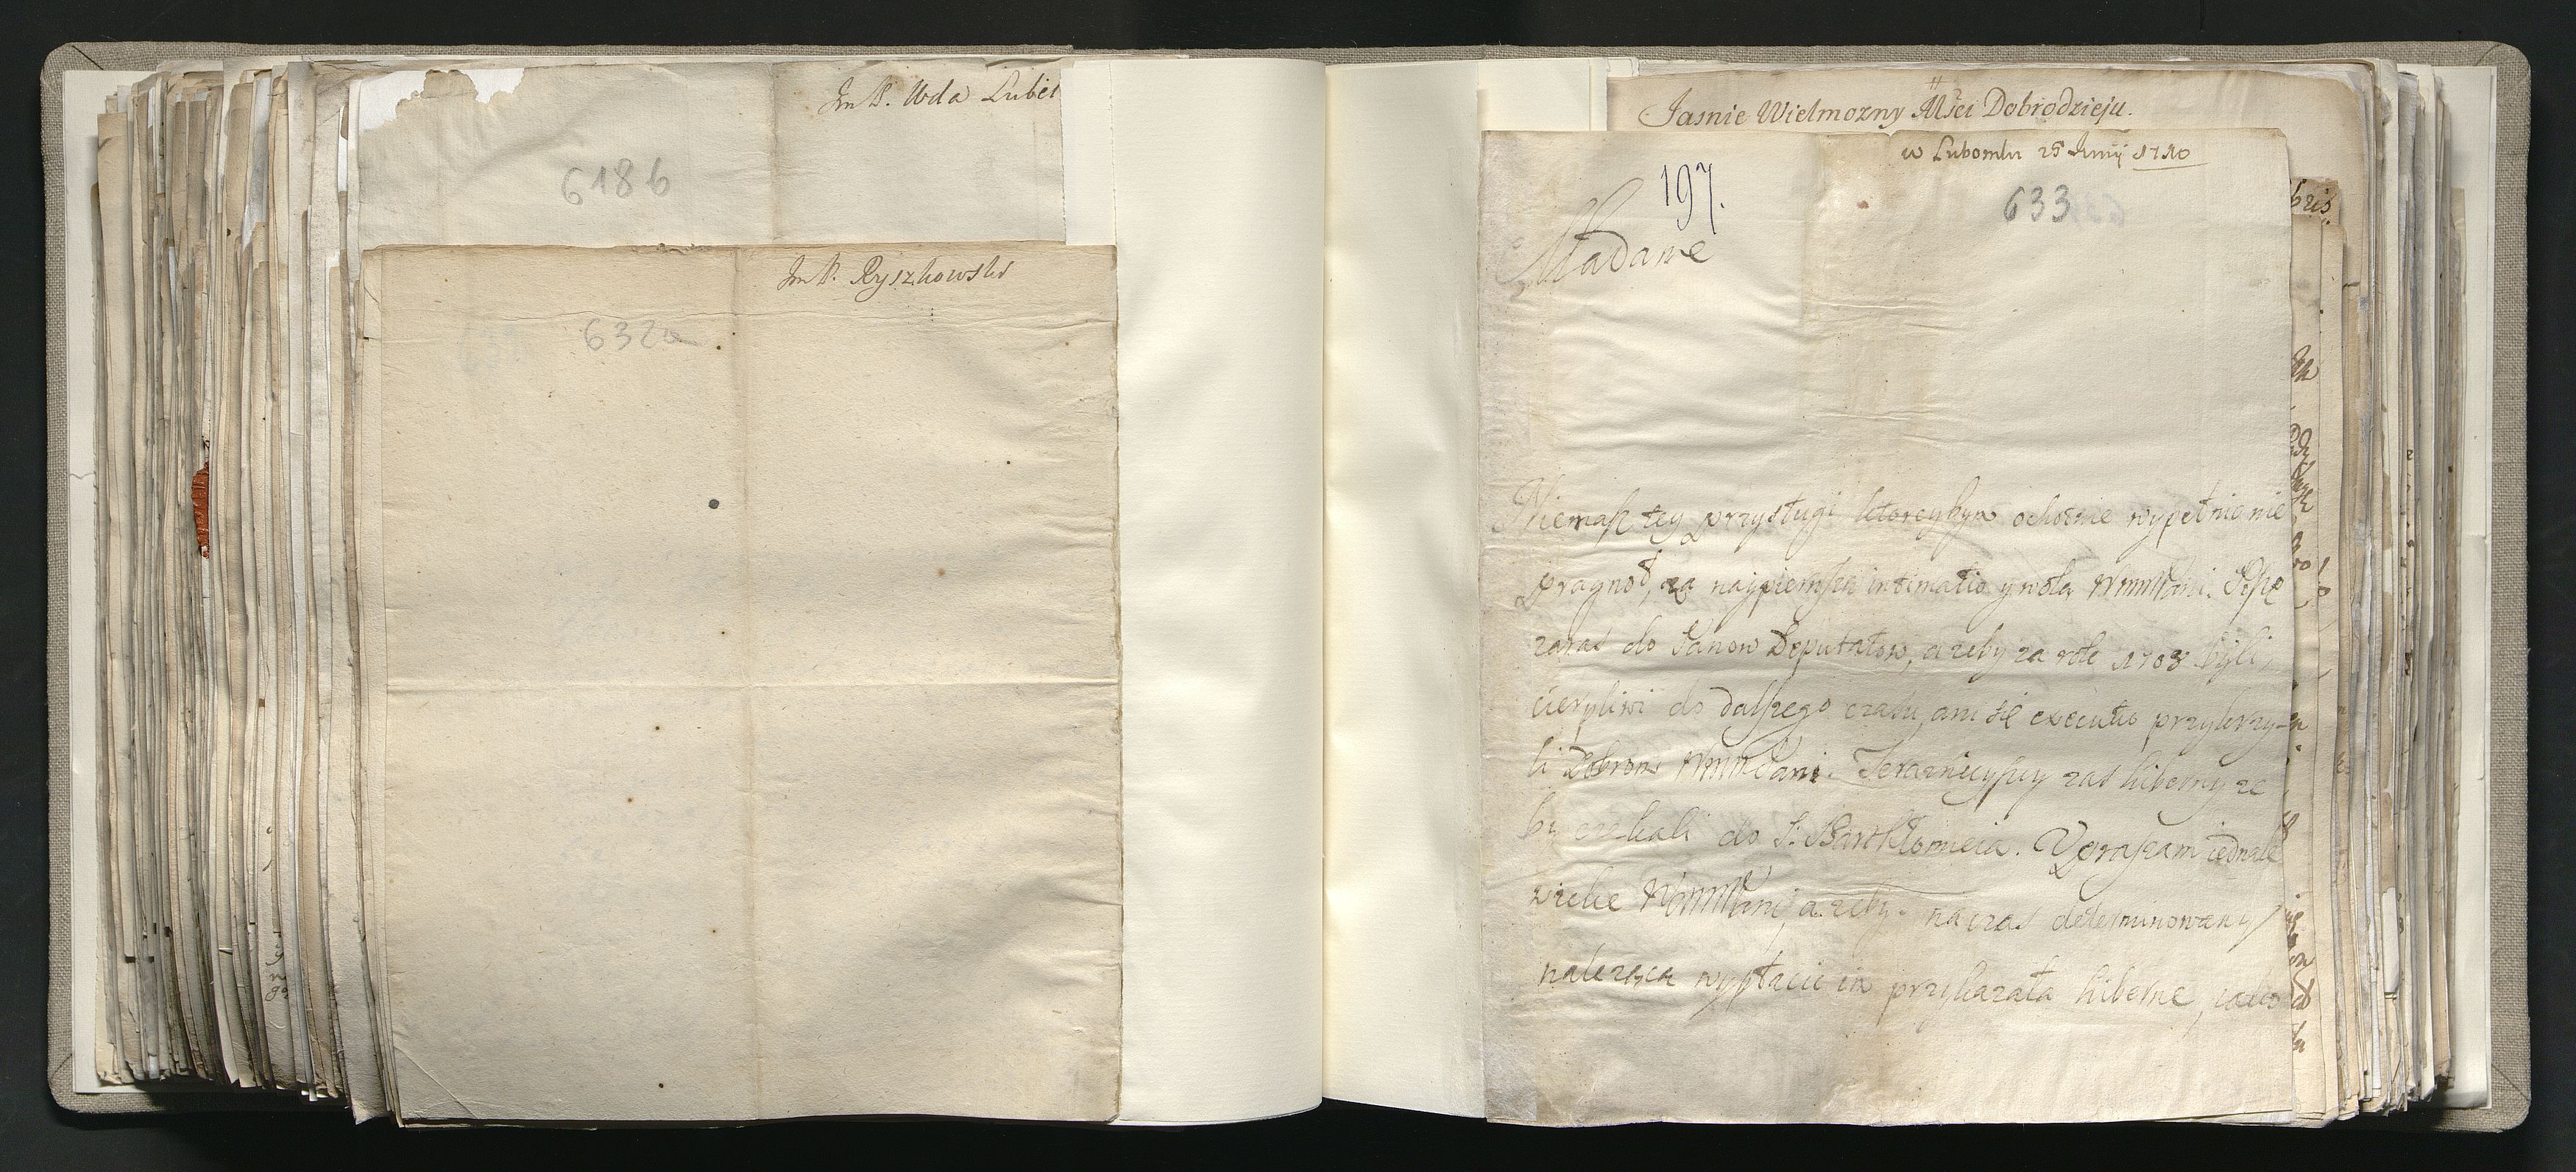 Im P. Wda Lubel
6186
Im P. Ryszkowski
632a
Jasnie Wielmozny Msci Dobrodzieju.
w Lubomlu 25 Junij 1710
197.
633
Madame
Niemasz tey przysługi ktoreybym ochotnie wypełnic nie
pragnoł, za naypierwszą intimatią y wolą WmMPani. Piszę
zaras do Panow Deputatow, azeby za rok 1708 byli,
cierpliwi do dalszego czasu, ani się executią przykrzy-
li Dobrom WmMPani. Teraznieyszy zas hiberny ze
by czekali do S: Barthłomieia. Upraszam iednak
wielce WmMPani, azeby na czas determinowany
nalezącą wypłacic im przykazała hibernę, iako